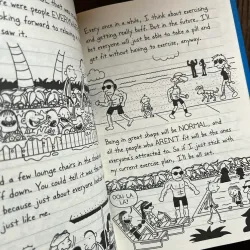 there were people EVERY
oking forward to
saw it.
d a few lounge chairs in the
f down. You could tell it was
because just about everyone
just like me.
Every once in a while, I think about exercising
and getting really buff. But in the future, I'll
bet everyone will just be able to take a pill and
get fit without having to exercise, anyway.
Being in great shape will be NORMAL, and
all the people who AREN'T fit will be the ones
everyone's attracted to. So if I just stick with
my current exercise plan, I'll be all set.
OOH LA
LA!